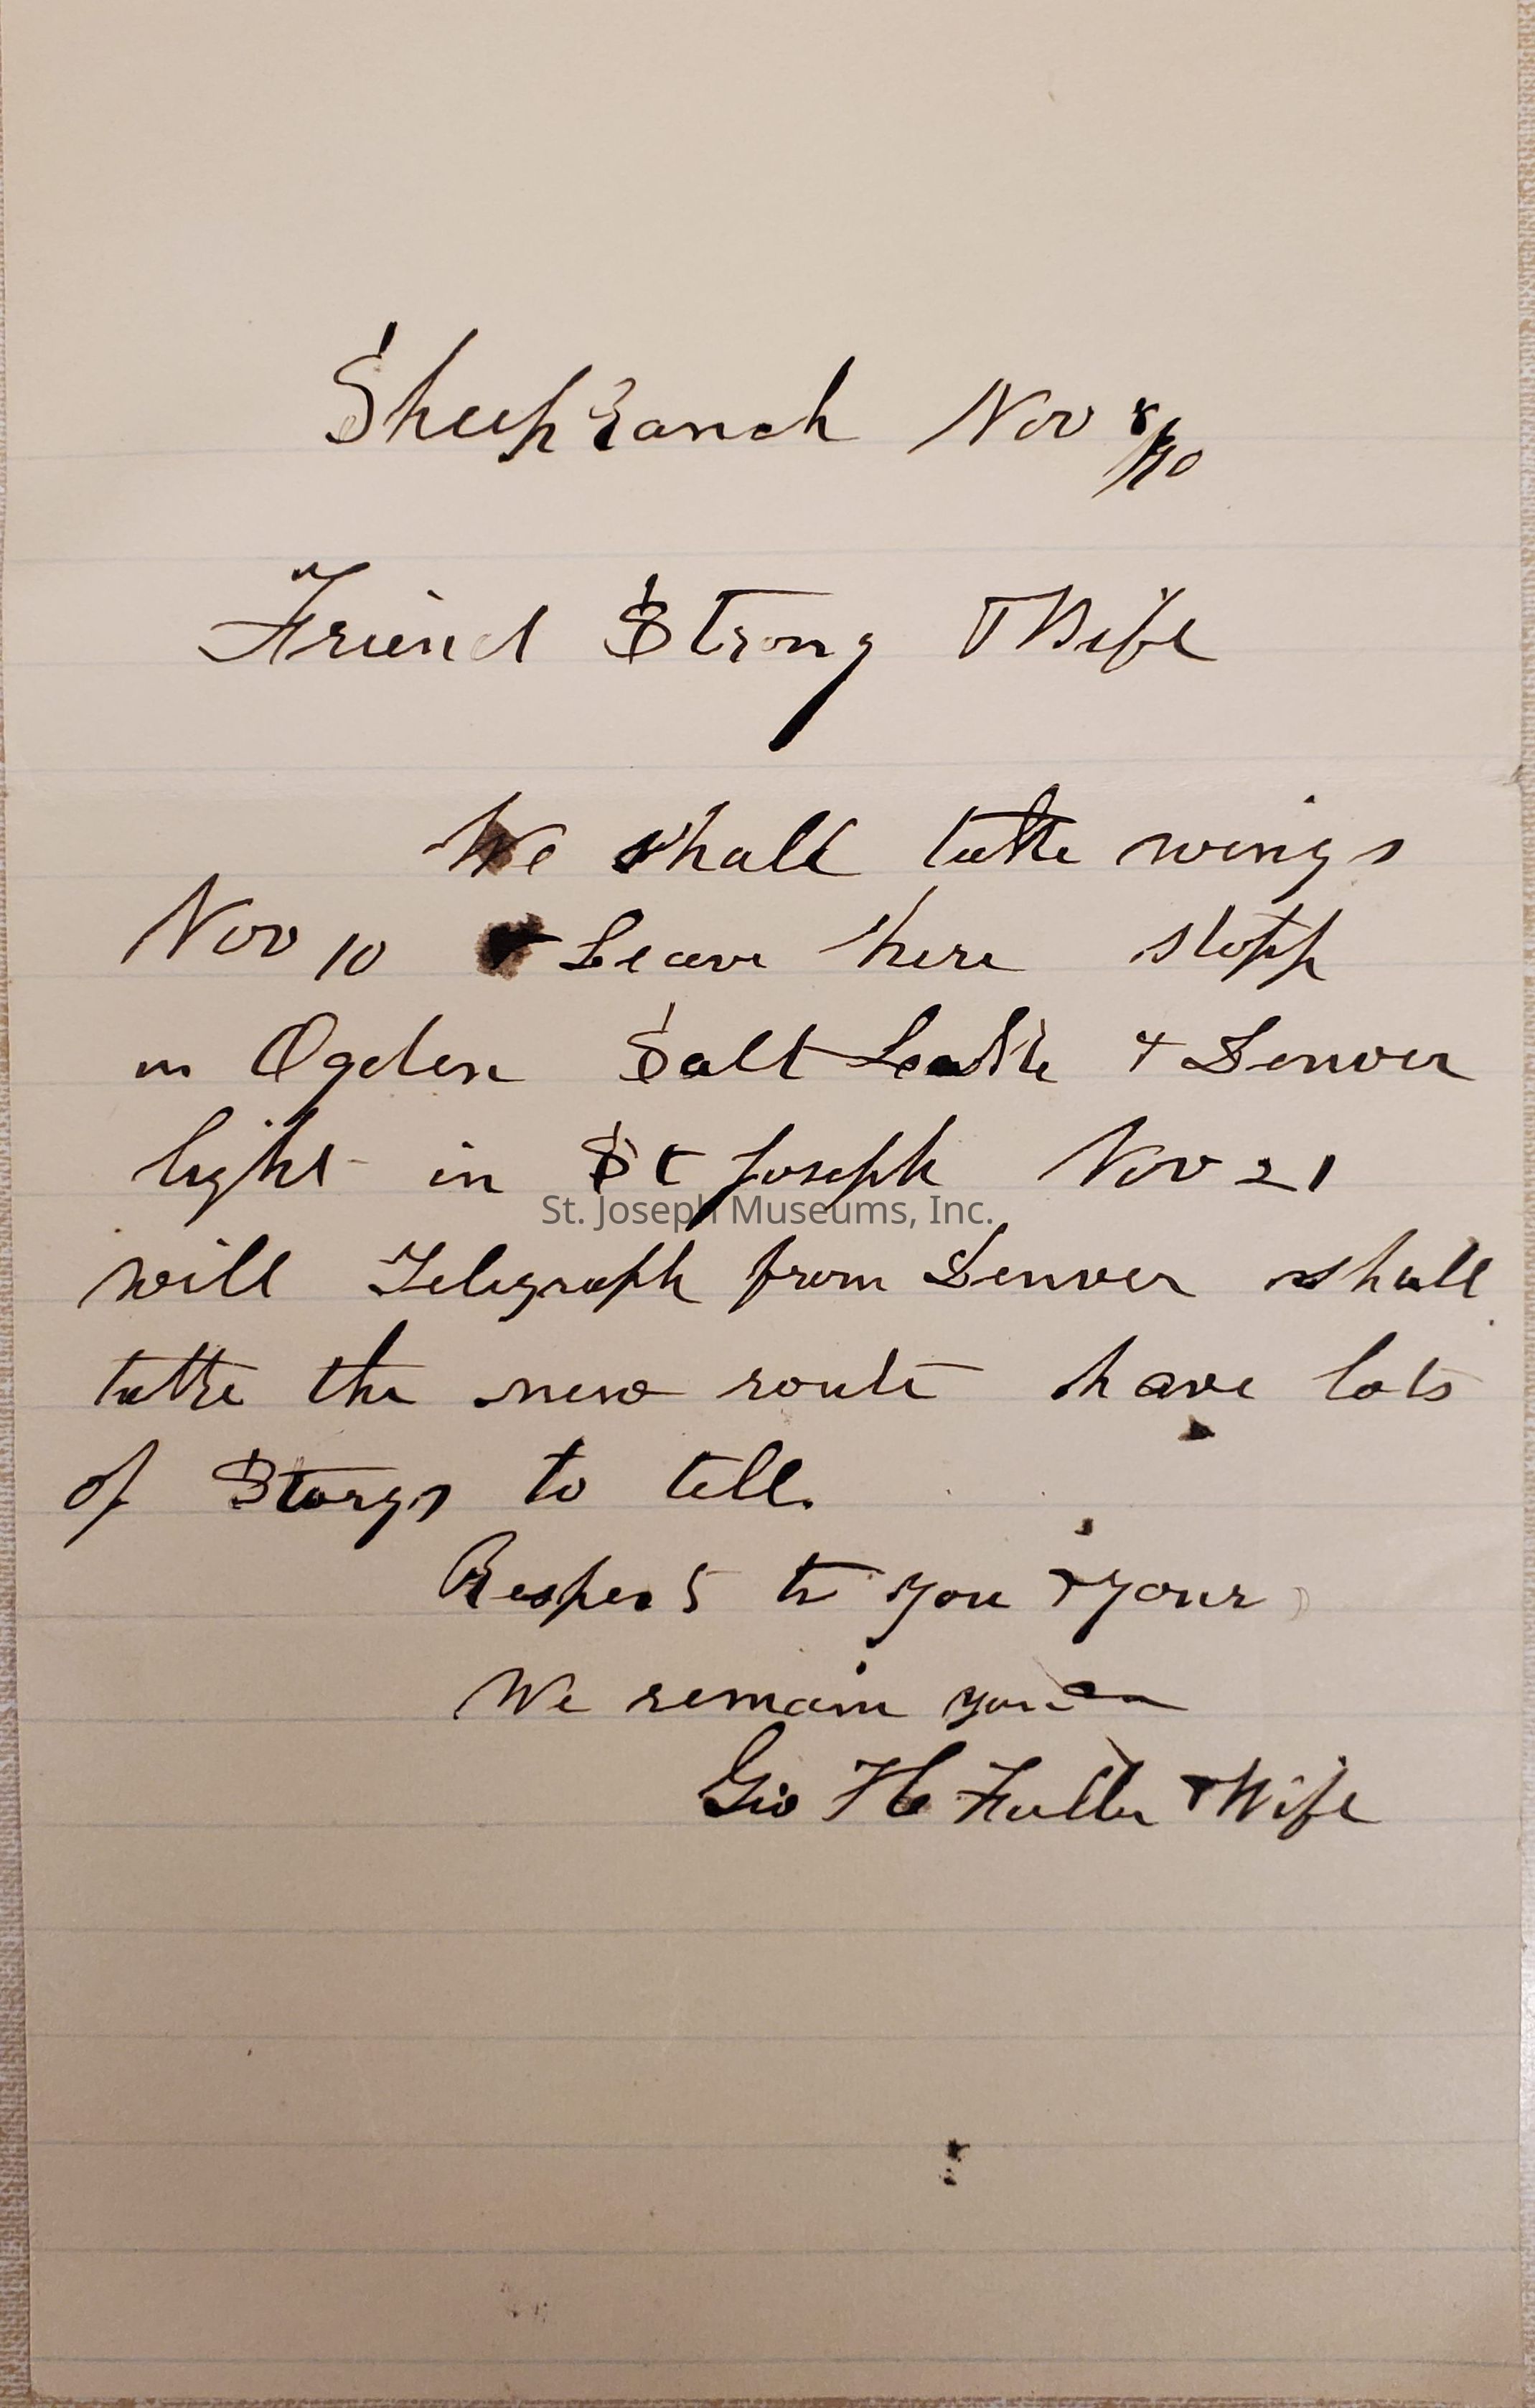 Sheepranch Nov 8/90
Friend Strong & Wife
We shall take wings
Nov 10 Leave here stopp
in Ogden Salt Lake & Denver
light in St Joseph Nov 21
St. Joseph Museums, Inc.
will Telegraph from Denver shall
take the new route have lots
of Storys to tell.
Respects to you & your
We remain
Geo H Fuller & Wife